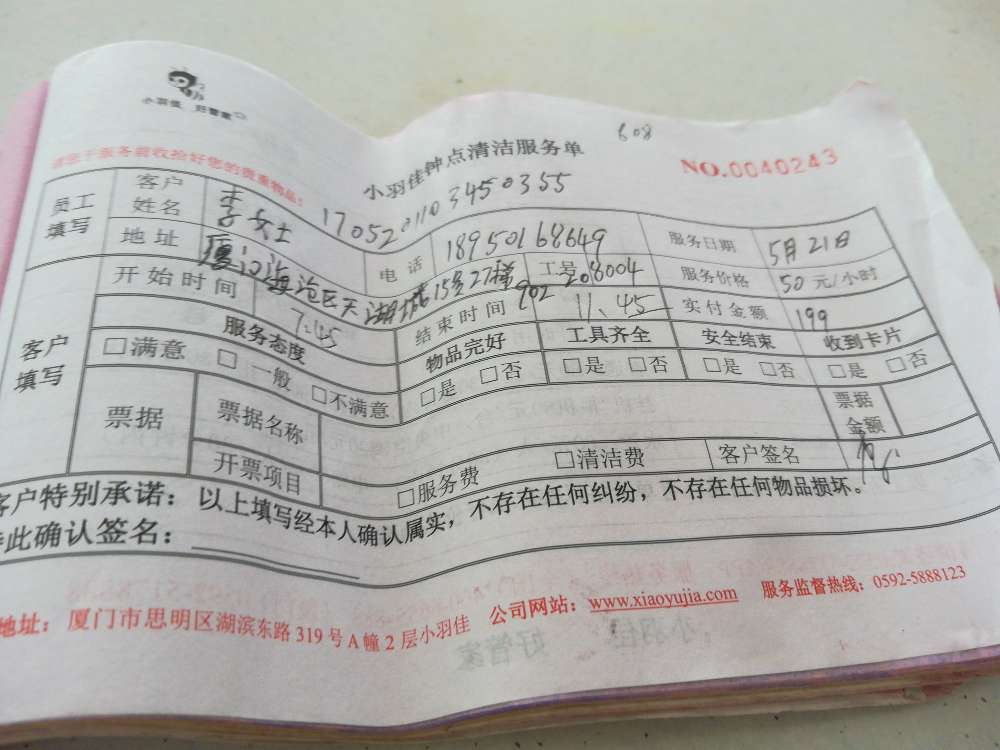 小羽佳 好管家
608
小羽佳钟点清洁服务单
NO.0040243
请您于服务前收拾好您的贵重物品!
17052011034 50355
员工填写 客户姓名 李女士 电话 18950168649 服务日期 5月21日
地址 厦门海沧区天湖城15号27梯902 工号 208004 服务价格 50元/小时
客户填写 开始时间 7:45 结束时间 11.45 实付金额 199
服务态度 物品完好 工具齐全 安全结束 收到卡片
□满意 □一般 □不满意 □是 □否 □是 □否 □是 □否 □是 □否
票据 票据名称 票据金额
开票项目 □服务费 □清洁费 客户签名
客户特别承诺：以上填写经本人确认属实，不存在任何纠纷，不存在任何物品损坏。
此确认签名：
地址：厦门市思明区湖滨东路319号A幢2层小羽佳 公司网站：www.xiaoyujia.com 服务监督热线：0592-5888123